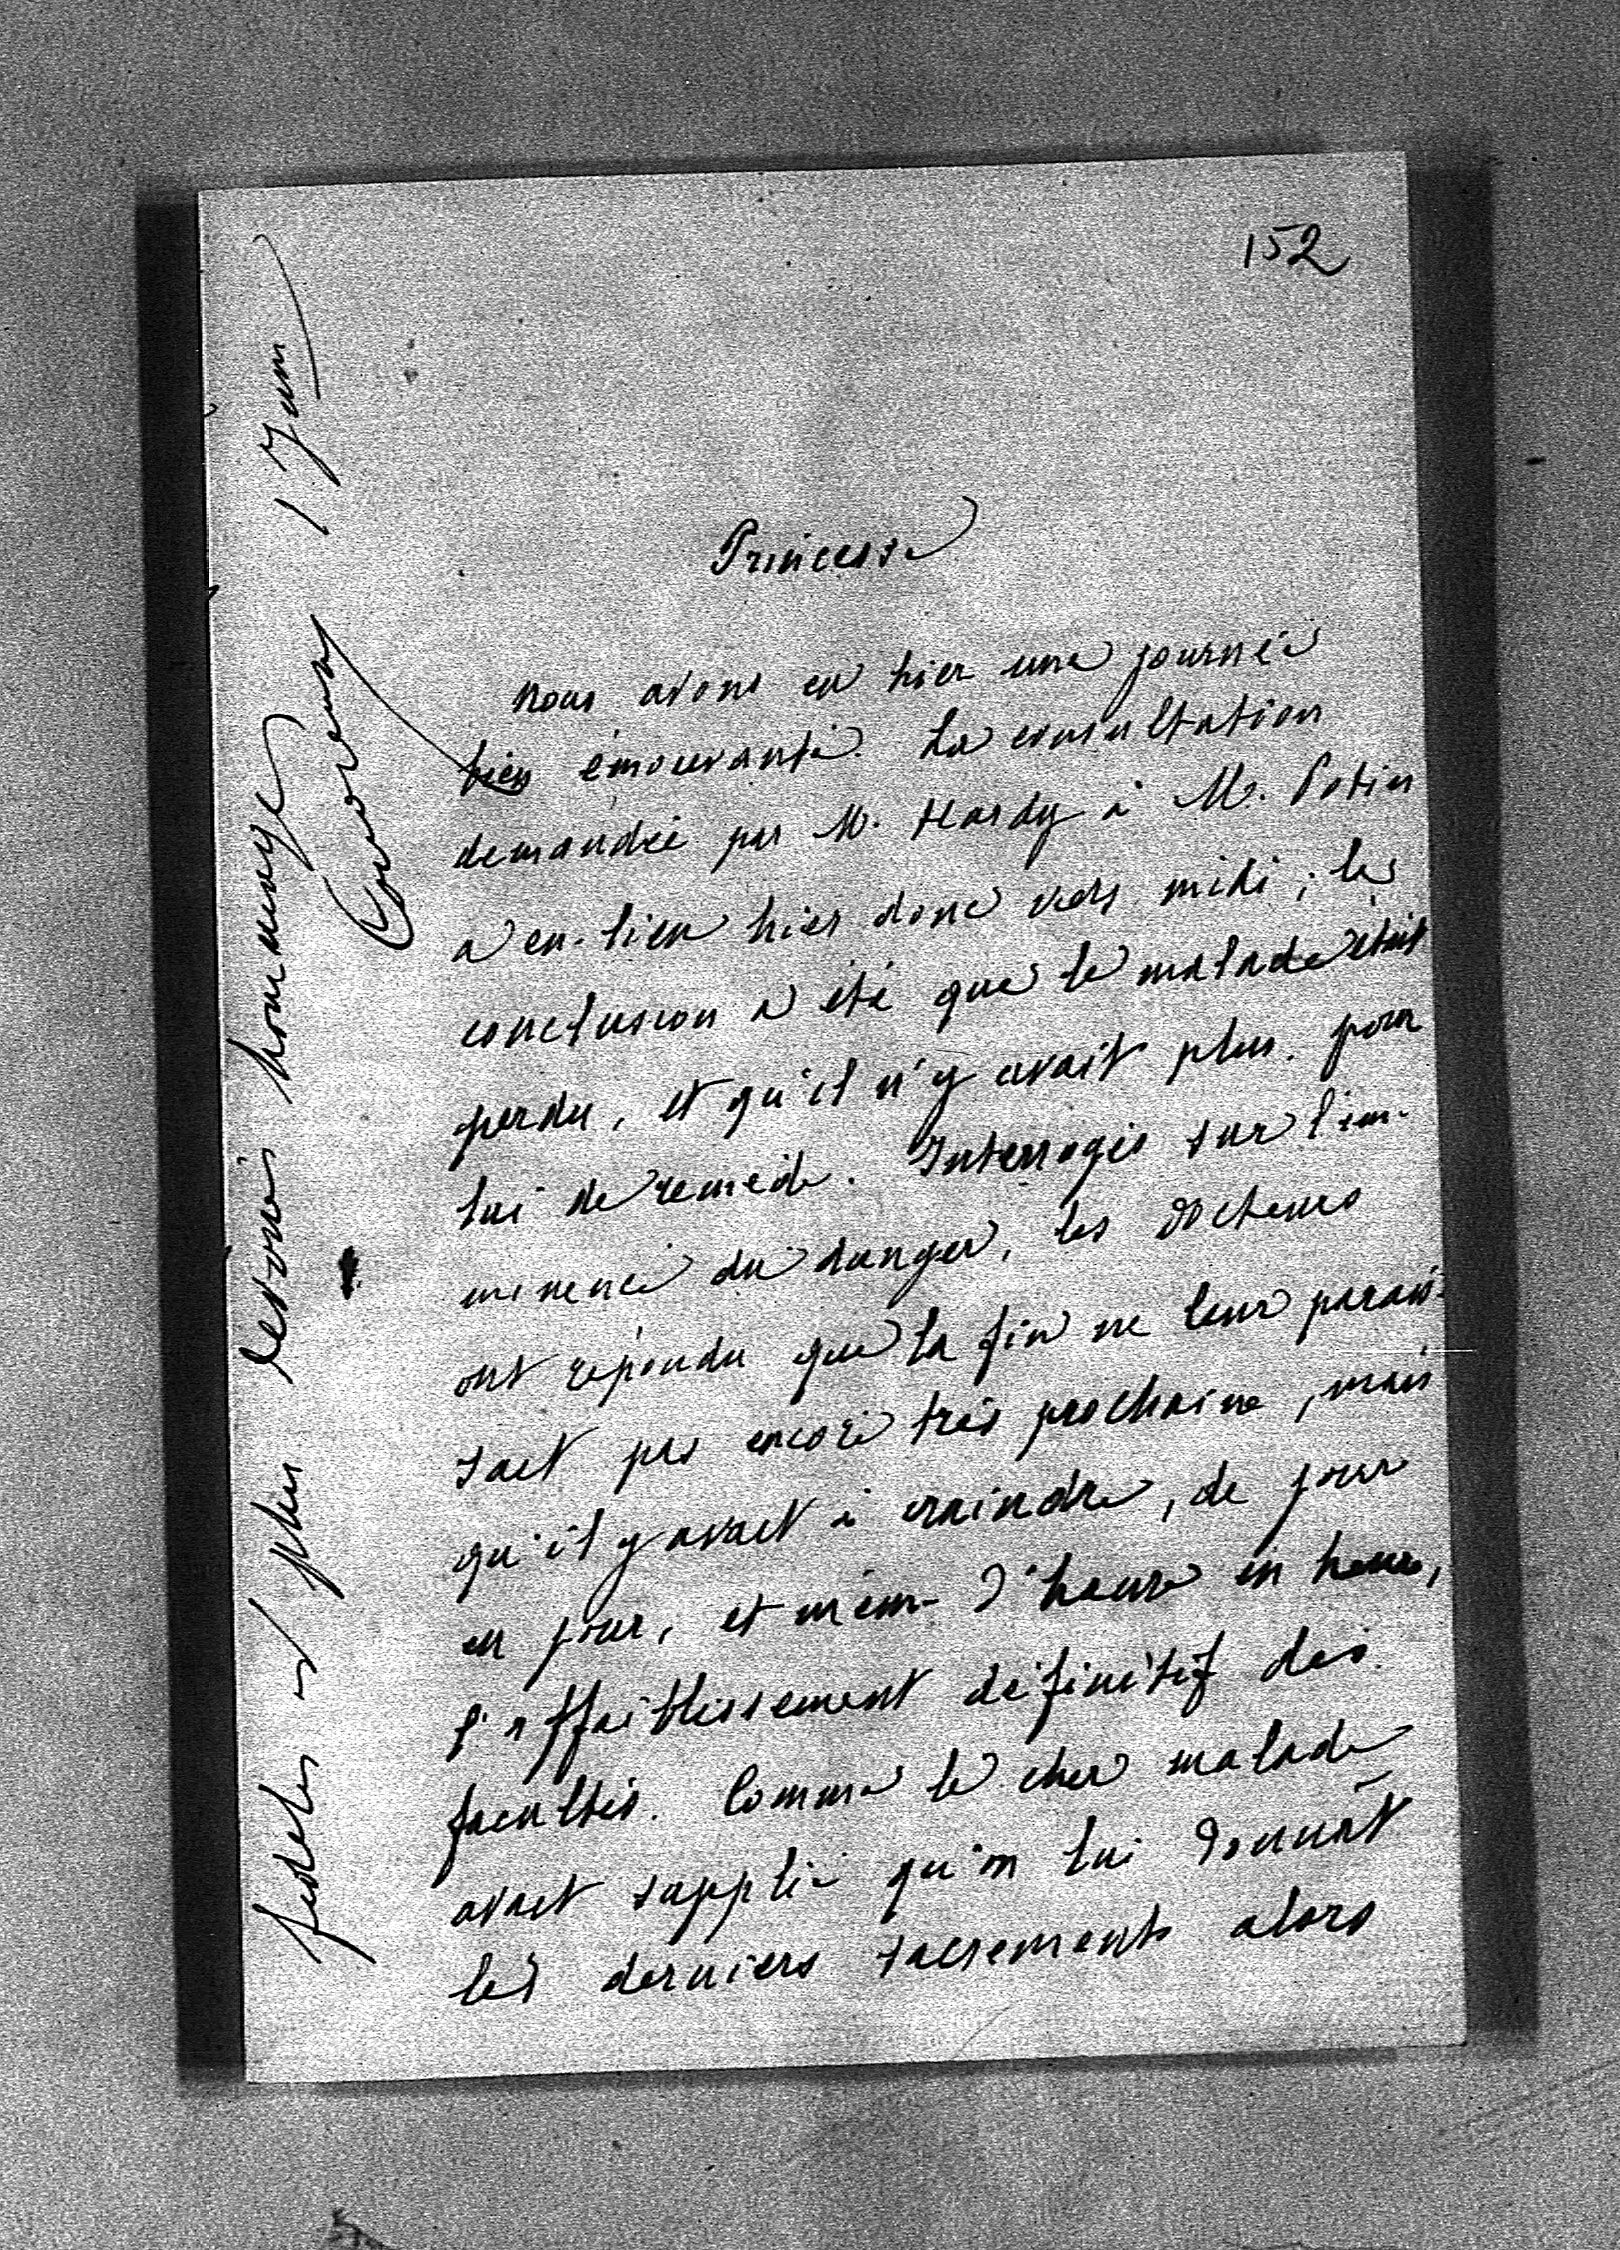 152
Princesse
Nous avons eu hier une journée
bien émouvante. La consultation
demandée par M. Hardy à M. Potier
a eu lieu hier donc vers midi ; la
conclusion a été que le malade était
perdu, et qu'il n'y avait plus pour
lui de remède. Interrogés sur l'im-
minence du danger, les docteurs
ont répondu que la fin ne leur parais-
sait pas encore très prochaine, mais
qu'il y avait à craindre, de jour
en jour, et même d'heure en heure,
l'affaiblissement définitif des
facultés. Comme le cher malade
avait supplié qu'on lui donnât
les derniers sacrements alors
fidèles et plus dévoués hommages
1 Juin